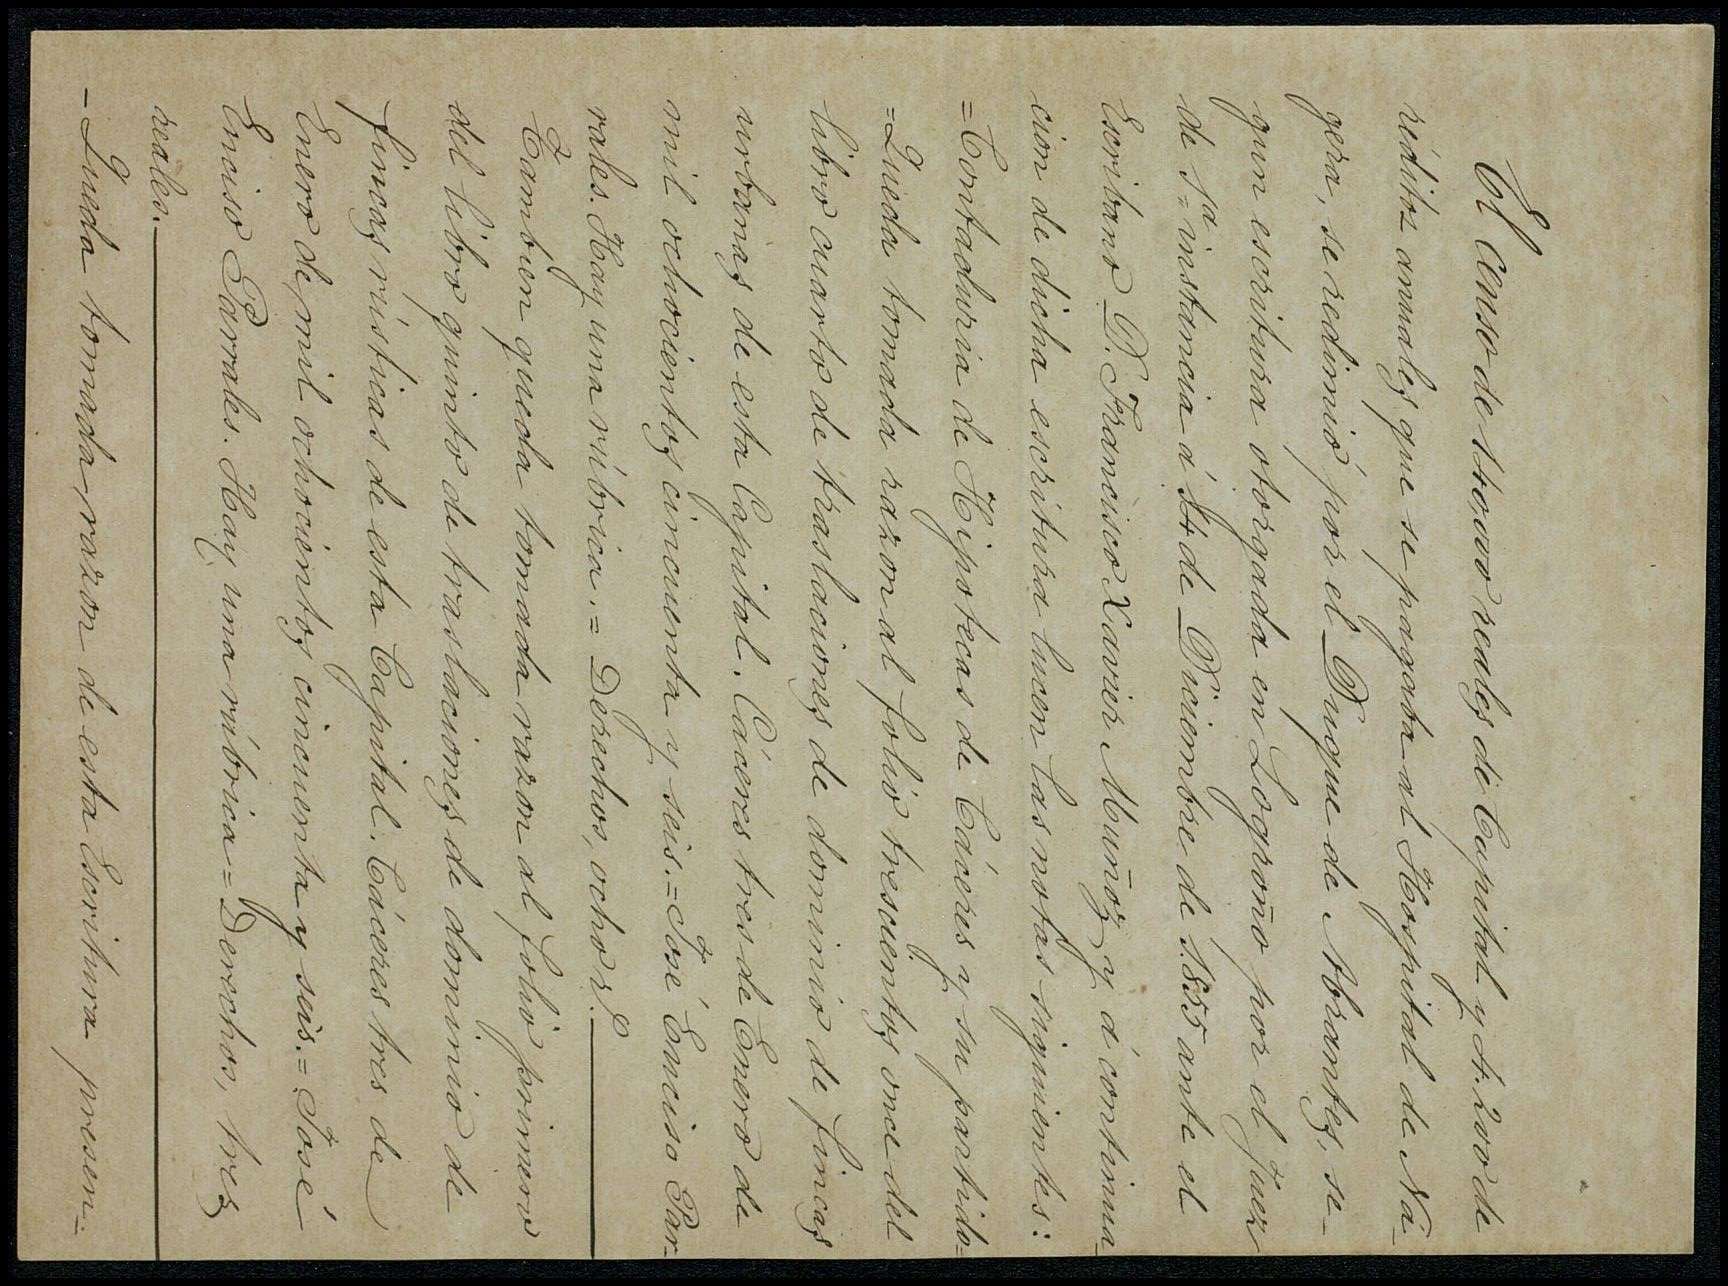 El censo de 140000 reales de Capital y 4.200 de
réditos anuales que se pagaba al Hospital de Ná-
gera, se redimió por el Duque de Abrantes, se-
gun escritura otorgada en Logroño por el Juez
de 1ª instancia á 14 de Diciembre de 1.855 ante el
Escribano D. Francisco Xavier Muñoz y á continua-
cion de dicha escritura lucen las notas siguientes:
=Contaduria de Hipotecas de Cáceres y su partido=
=Queda tomada razon al folio trescientos once del
libro cuarto de traslaciones de dominio de fincas
urbanas de esta Capital. Cáceres tres de Enero de
mil ochocientos cincuenta y seis.=José Enciso Par-
rales. Hay una rúbrica.=Derechos, ocho r.ˢ
Tambien queda tomada razon al folio primero
del libro quinto de traslaciones de dominio de
fincas rústicas de esta Capital. Cáceres tres de
Enero de mil ochocientos cincuenta y seis.=José
Enciso Parrales. Hay una rúbrica=Derechos, tres
reales.
-Queda tomada razon de esta Escritura presen-